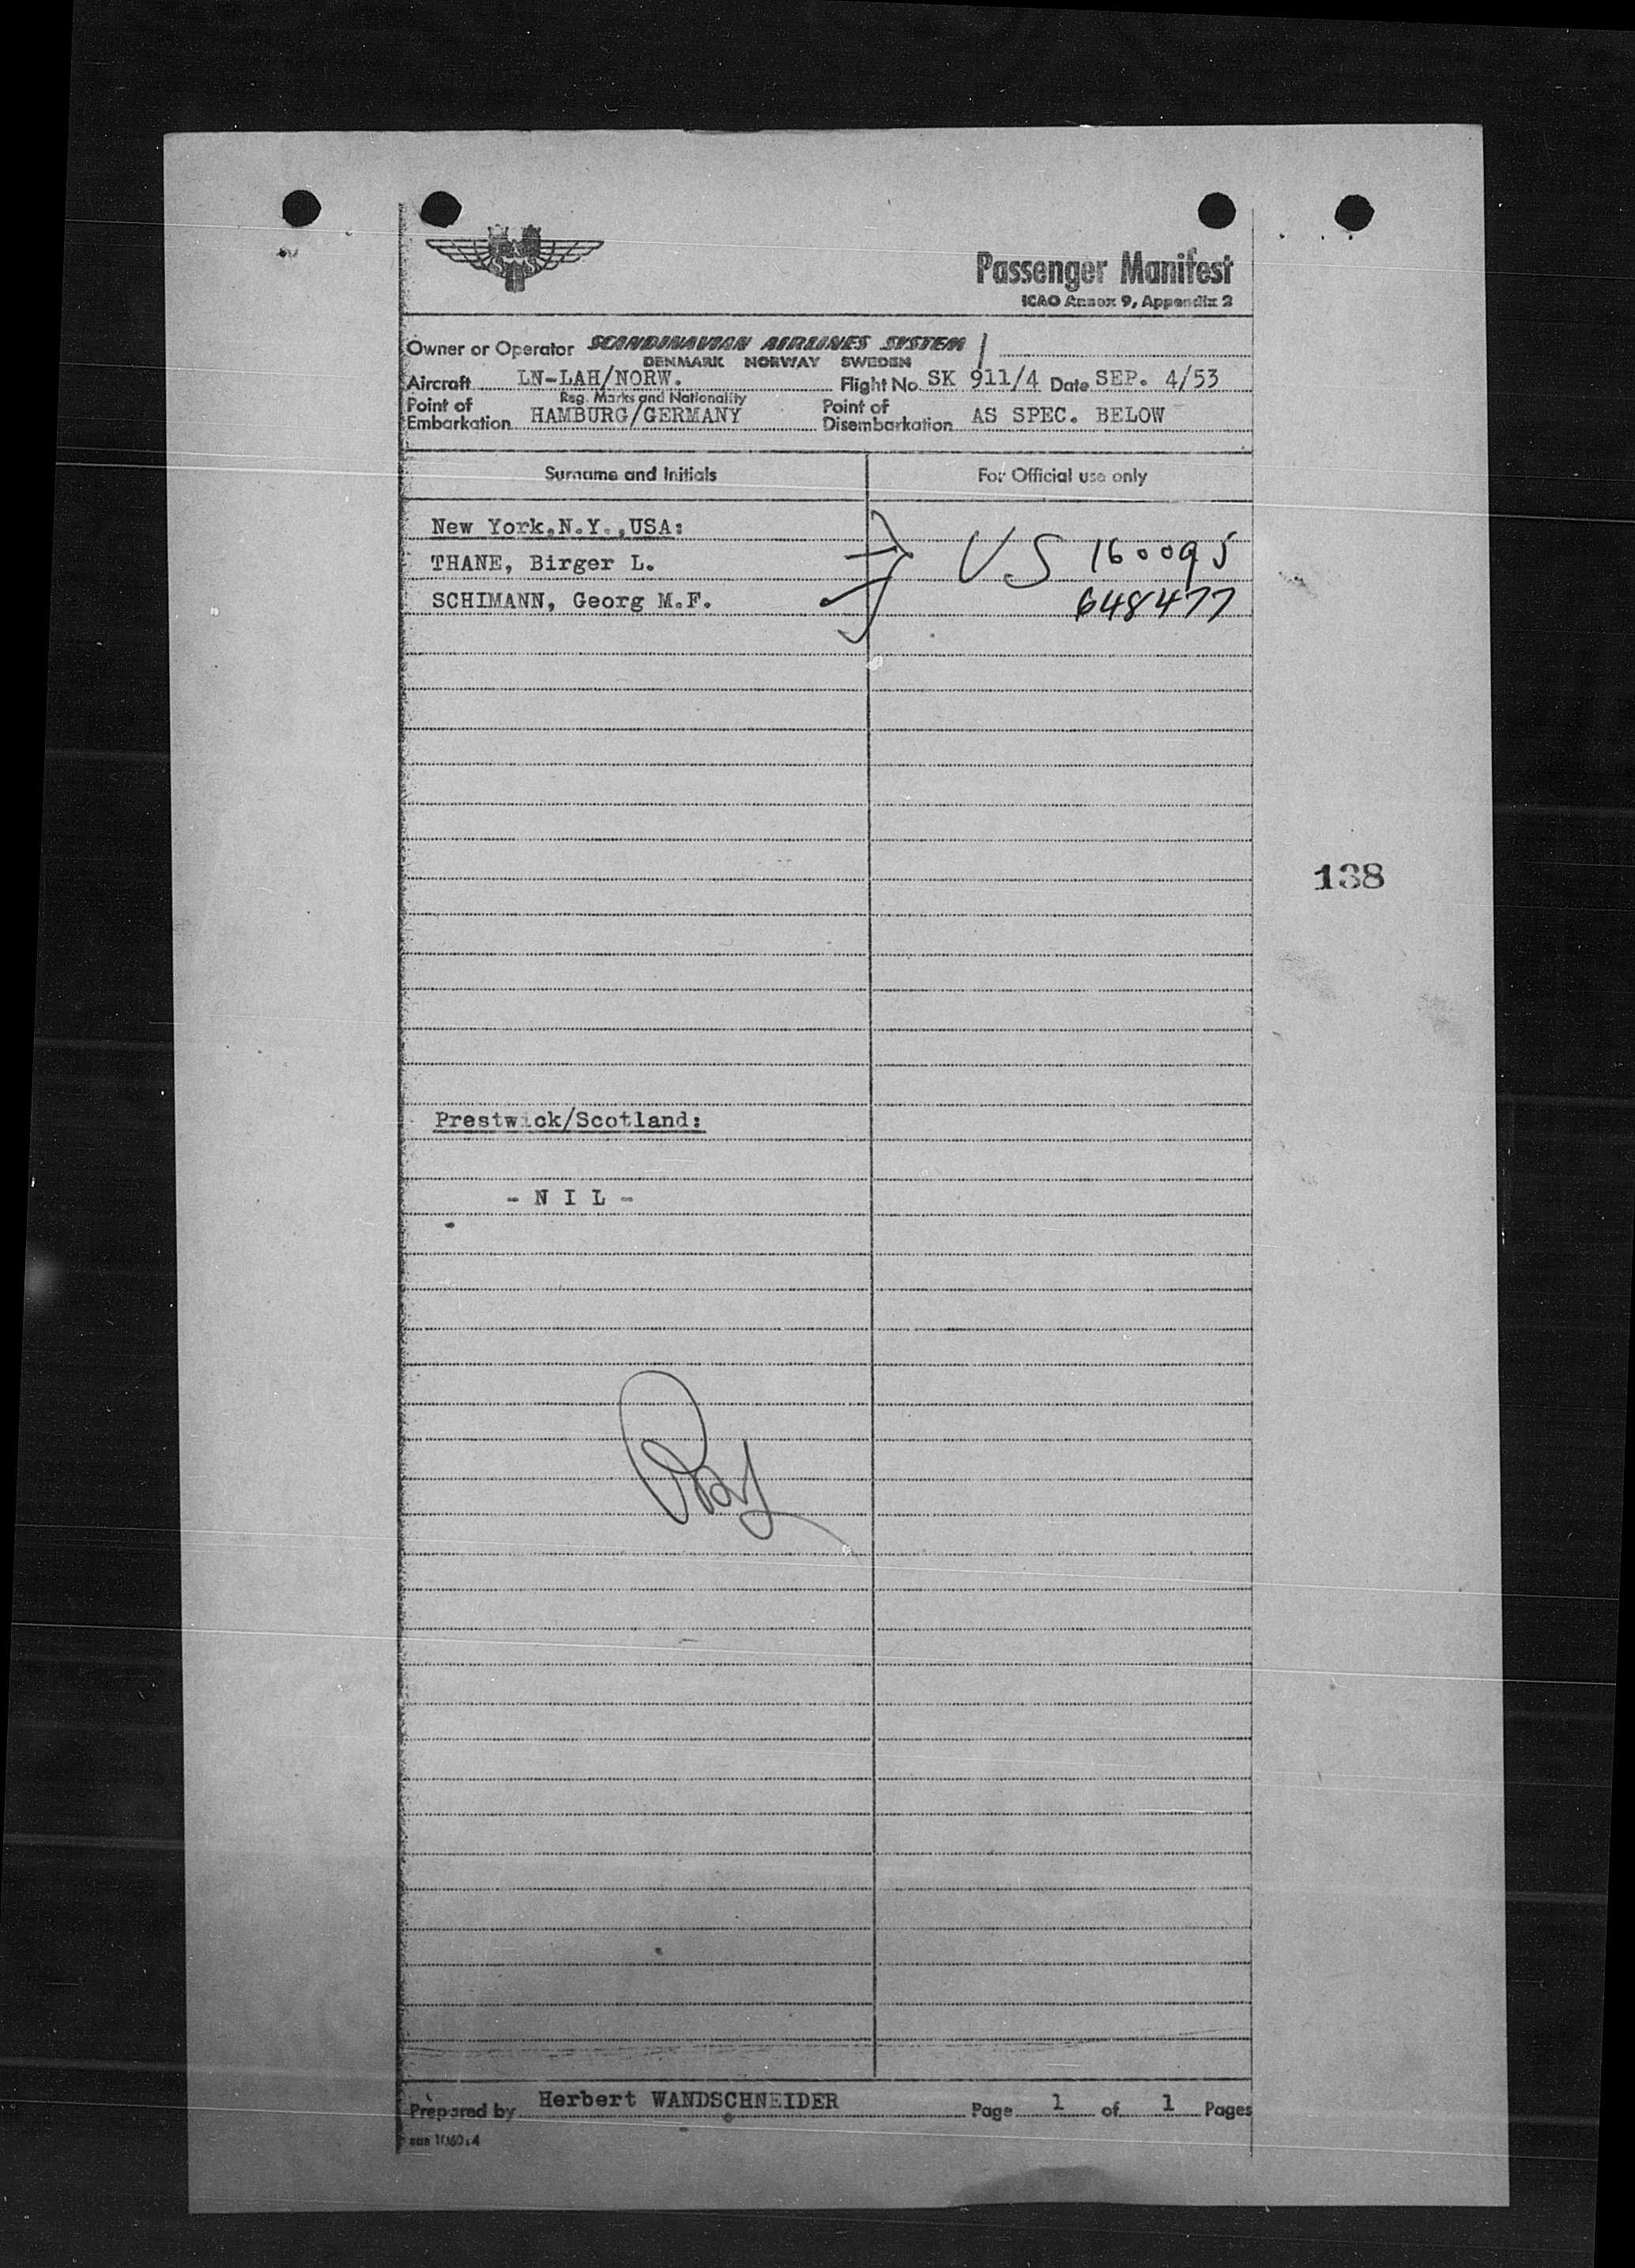 SAS
Passenger Manifest
ICAO Annex 9, Appendix 2
Owner or Operator SCANDINAVIAN AIRLINES SYSTEM
DENMARK NORWAY SWEDEN
Aircraft LN-LAH/NORW. Flight No. SK 911/4 Date SEP. 4/53
Reg. Marks and Nationality
Point of Embarkation HAMBURG/GERMANY Point of Disembarkation AS SPEC. BELOW
Surname and Initials For Official use only
New York,N.Y.,USA:
THANE, Birger L. US 160095
SCHIMANN, Georg M.F. 648477
138
Prestwick/Scotland:
- N I L -
Prepared by Herbert WANDSCHNEIDER Page 1 of 1 Pages